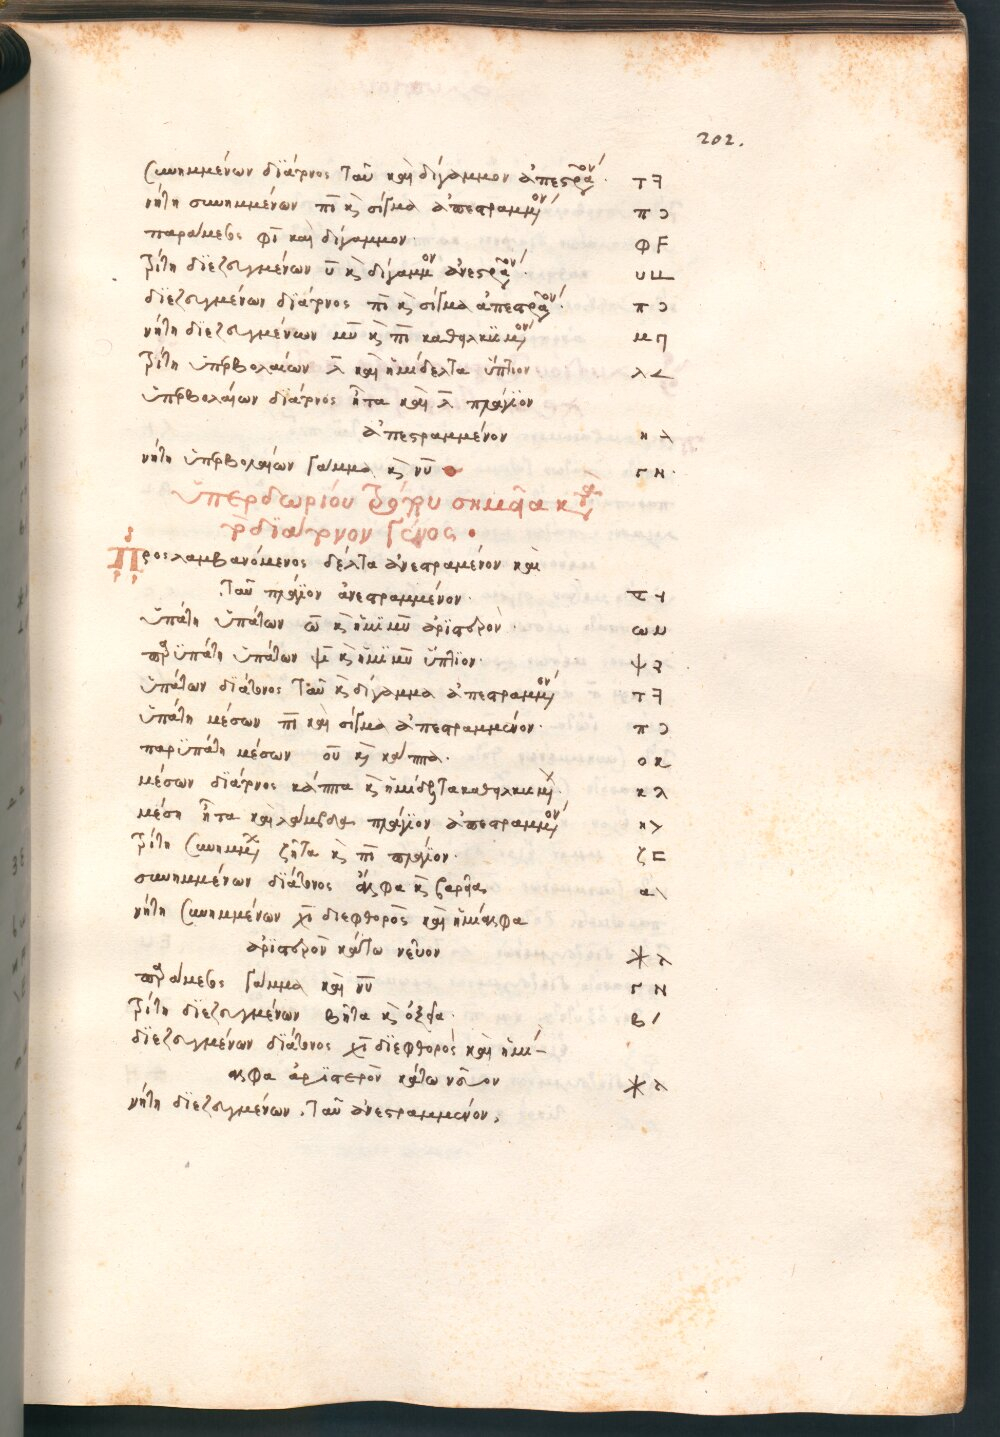 202.
συνημμένων διάτονος ταῦ καὶ δίγαμμον ἀπεστραμμον · Τ Ⅎ
νήτη συνημμένων πῖ κ̀ σίγμα ἀπεστραμμον Π Ɔ
παράμεσος φῖ καὶ δίγαμμον · Φ F
τρίτη διεζευγμένων ῡ κ̀ δίγαμμον ἀνεστραμμον ·
διεζευγμένων διάτονος πῖ κ̀ σίγμα ἀπεστραμμον · Π Ɔ
νήτη διεζευγμένων μῦ κ̀ πῖ καθειλκυσμον
τρίτη ὑπερβολαίων λ̄ καὶ ἡμίδελτα ὕπτιον
ὑπερβολαίων διάτονος ἦτα καὶ λ̄ πλάγιον
ἀπεστραμμένον
νήτη ὑπερβολαίων γάμμα κ̀ νῦ Γ Ν ·
ὑπερδωρίου τρόπου σημεῖα κατὰ
τὸ διάτονον γένος ·
Προσλαμβανόμενος δέλτα ἀνεστραμένον καὶ
ταῦ πλάγιον ἀνεστραμμένον ·
ὑπάτη ὑπάτων ω̄ κ̀ ἡμίμυ ἀριστερὸν ·
παρυπάτη ὑπάτων ψῑ κ̀ ἡμίμυ ὕπτιον ·
ὑπάτων διάτονος ταῦ κ̀ δίγαμμα ἀπεστραμμον Τ Ⅎ
ὑπάτη μέσων πῖ καὶ σίγμα ἀπεστραμμένον · Π Ɔ
παρυπάτη μέσων οῦ κ̀ κάππα · Ο Κ
μέσων διάτονος κάππα κ̀ ἡμίδελτα καθειλκυσμ ·
μέση ἦτα καὶ λάμβδα πλάγιον ἀπεστραμμον
τρίτη συνημμ ζῆτα κ̀ πῖ πλάγιον · Ζ ⊏
συνημμένων διάτονος ἄλφα κ̀ βαρεῖα Α \
νήτη συνημμένων χῖ διεφθορὸς καὶ ἡμίαλφα
ἀριστερὸν κάτω νεῦον
παράμεσος γάμμα καὶ νῦ Γ Ν
τρίτη διεζευγμένων βῆτα κ̀ ὀξεῖα · Β /
διεζευγμένων διάτονος χῖ διεφθορὸς καὶ ἡμί-
αλφα ἀριστερὸν κάτω νεῦον
νήτη διεζευγμένων . ταῦ ἀνεστραμμένον .